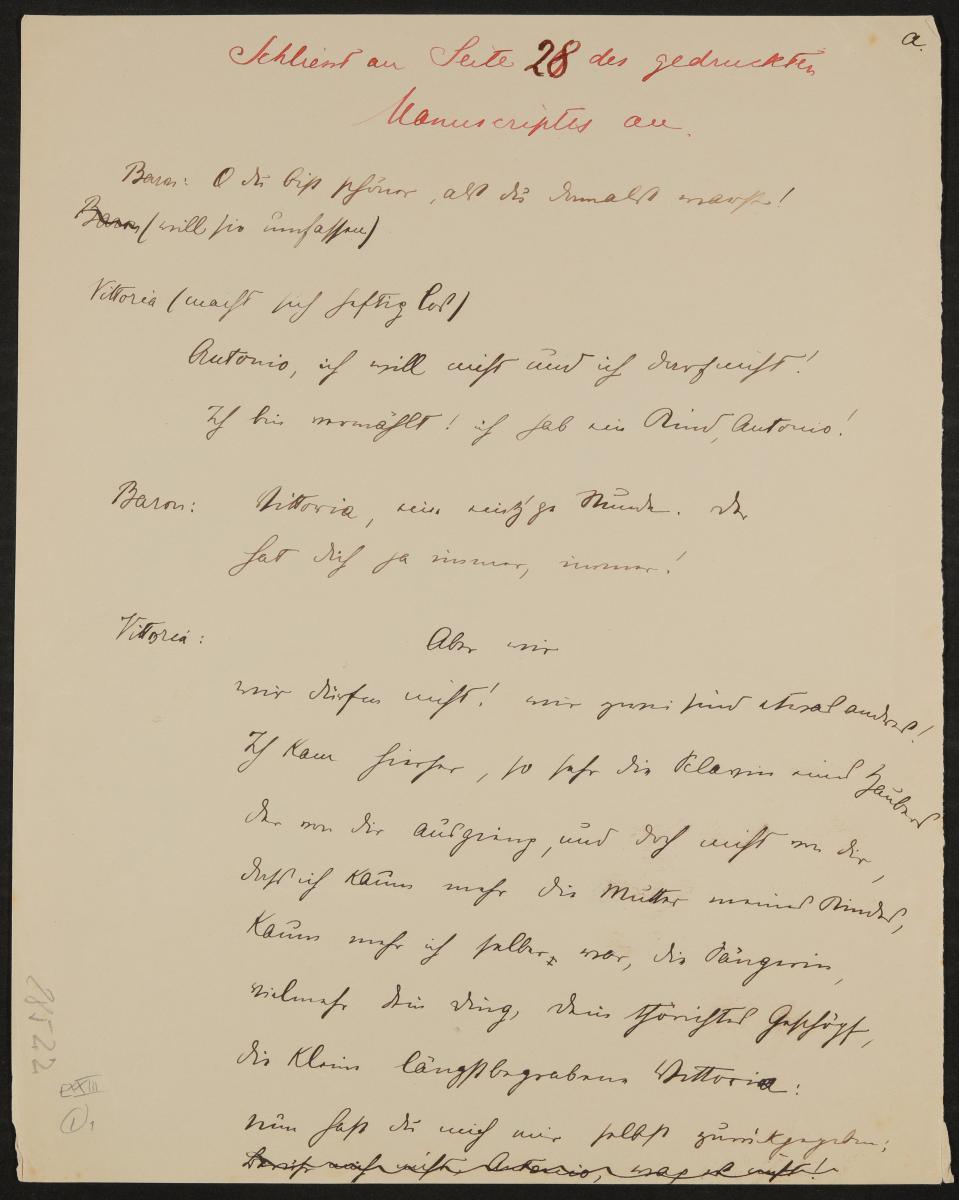 a.
Schliesst an Seite 28 des gedruckten
Manuscriptes an.
Baron: O du bist schöner, als du damals warst!
Baron (will sie umfassen)
Vittoria (macht sich heftig los)
Antonio, ich will nicht und ich darf nicht!
Ich bin vermählt! ich hab ein Kind, Antonio!
Baron: Vittoria, eine einz'ge Stunde. Der
hat dich ja immer, immer!
Vittoria: Aber wir
wir dürfen nicht! wir zwei sind etwas andres!
Ich kam hierher, so sehr die Sclavin eines Zaubers
der von dir ausgieng, und doch nicht von dir,
dass ich kaum mehr die Mutter meines Kindes,
kaum mehr ich selber war, die Sängerin,
vielmehr dein Ding, dein thörichtes Geschöpf,
die kleine längstbegrabene Vittoria:
nun hast du mich mir selbst zurückgegeben;
mich nicht Antonio, wag es nicht!
28522
1